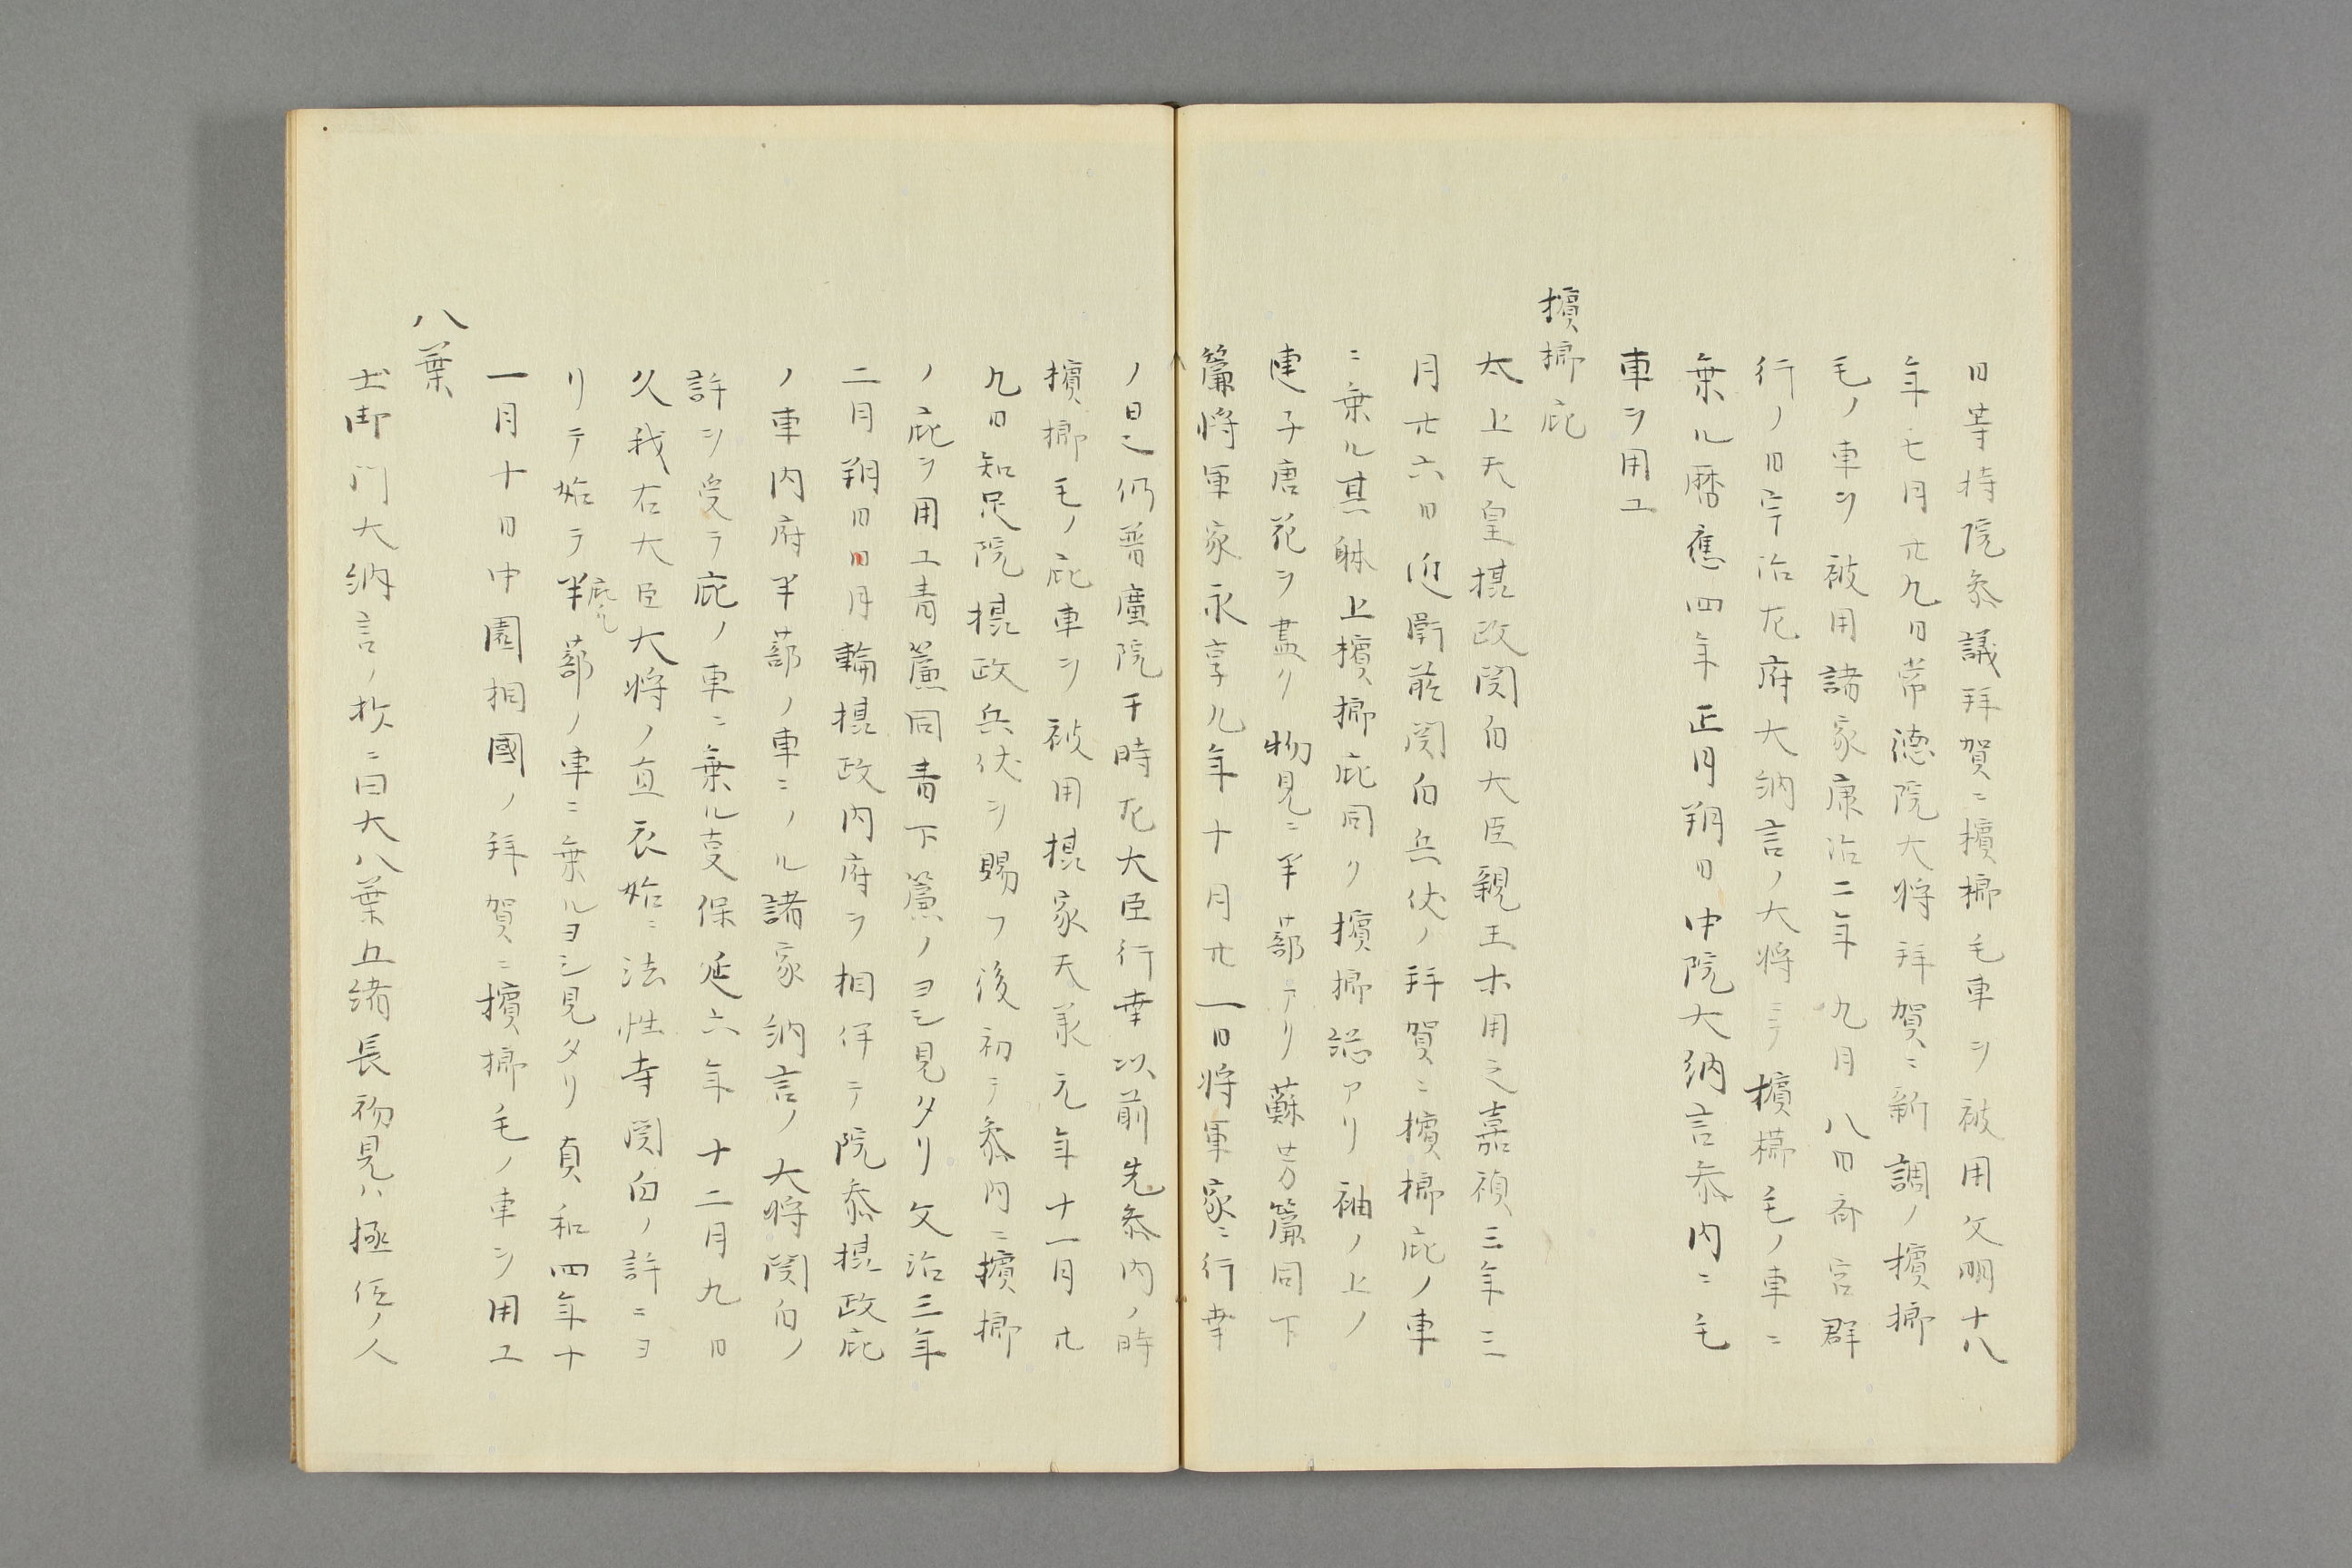 日等持院参議拝賀ニ擯榔毛車ヲ被用文明十八
年七月廿九日常徳院大将拝賀ニ新調ノ擯榔
毛ノ車ヲ被用諸家康治二年九月八日斎宮群
行ノ日宇治左府大納言ノ大将ニテ擯榔毛ノ車ニ
乗ル暦應四年正月朔日中院大納言参内ニ毛
車ヲ用ユ
擯榔庇
太上天皇摂政関白大臣親王ホ用之嘉禎三年三
月廿六日近衛前関白兵仗ノ拝賀ニ擯榔庇ノ車
ニ乗ル其躰上擯榔庇同ク擯榔総アリ袖ノ上ノ
連子唐花ヲ畫ク物見ニ半蔀アリ蘇芳簾同下
簾将軍家永享九年十月廿一日将軍家ニ行幸
ノ日之仍普廣院于時左大臣行幸以前先参内ノ時
擯榔毛ノ庇車ヲ被用摂家天承元年十一月廿
九日知足院摂政兵仗ヲ賜フ後初テ参内ニ擯榔
ノ庇ヲ用ユ青簾同青下簾ノヨシ見タリ文治三年
二月朔日日月輪摂政内府ヲ相伴テ院参摂政庇
ノ車内府半蔀ノ車ニノル諸家納言ノ大将関白ノ
許ヲ受テ庇ノ車ニ乗ル支保延六年十二月九日
久我右大臣大将ノ直衣始ニ法性寺関白ノ許ニヨ
リテ始テ半蔀庇ノ車ニ乗ルヨシ見タリ貞和四年十
一月十日中園相國ノ拝賀ニ擯榔毛ノ車ヲ用ユ
八葉
土御門大納言ノ抄ニ曰大八葉五緒長物見ハ極位ノ人